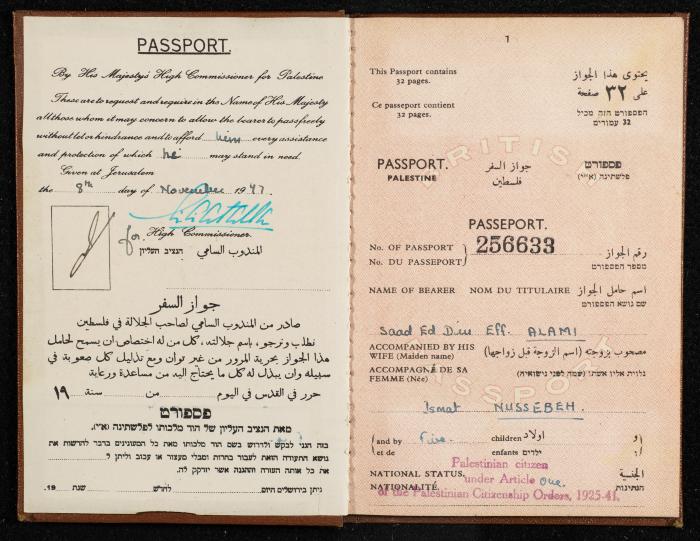 PASSPORT.
By His Majesty's High Commissioner for Palestine
These are to request and require in the Name of His Majesty
all those whom it may concern to allow the bearer to pass freely
without let or hindrance and to afford him every assistance
and protection of which he may stand in need.
Given at Jerusalem
the 8th day of November 1947
for. High Commissioner.
المندوب السامي הנציב העליון
جواز السفر
صادر من المندوب السامي لصاحب الجلالة في فلسطين
نطلب ونرجو، باسم جلالته، كل من له اختصاص ان يسمح لحامل
هذا الجواز بحرية المرور من غير توان ومع تذليل كل صعوبة في
سبيله وان يبذل له كل ما يحتاج اليه من مساعدة ورعاية
حرر في القدس في اليوم من سنة ١٩
פספורט
מאת הנציב העליון של הוד מלכותו לפלשתינה (א״י).
בזה הנני לבקש ולדרוש בשם הוד מלכותו מאת כל המעונינים בדבר להרשות את
נושא התעודה הזאת לעבור בחרות ומבלי מעצור או עכוב וליתן לו
את כל אותה העזרה וההגנה אשר יזדקק לה.
ניתן בירושלים היום לחדש שנת 19
1
This Passport contains
32 pages.
يحتوي هذا الجواز
على ٣٢ صفحة
Ce passeport contient
32 pages.
הפספורט הזה מכיל
32 עמודים
PASSPORT. جواز السفر פספורט
PALESTINE فلسطين פלשתינה (א״י)
PASSEPORT.
No. OF PASSPORT
No. DU PASSEPORT
256633
رقم الجواز
מספר הפספורט
NAME OF BEARER NOM DU TITULAIRE اسم حامل الجواز
שם נושא הפספורט
Saad Ed Din Eff. ALAMI
ACCOMPANIED BY HIS
WIFE (Maiden name)
مصحوب بزوجته (اسم الزوجة قبل زواجها)
ACCOMPAGNÉ DE SA
FEMME (Née)
נלוית אליו אשתו (שמה לפני נישואיה)
Ismat NUSSEBEH.
and by five children اولاد و
et de enfants ילדים
Palestinian citizen
NATIONAL STATUS. under Article one. الجنسية
NATIONALITÉ. הנתינות
of the Palestinian Citizenship Orders, 1925-41.